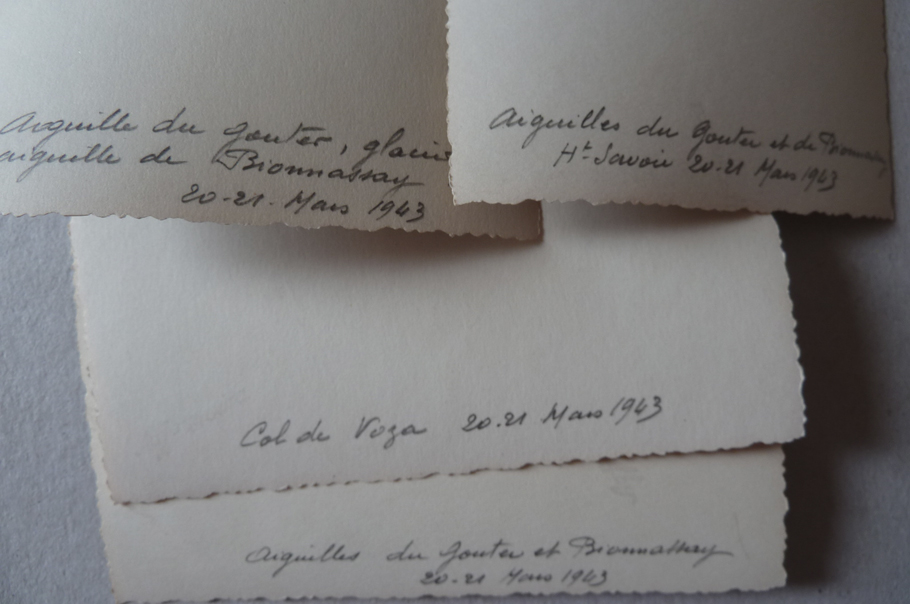 Aiguille du Gouter, glacier
aiguille de Bionnassay
20-21. Mars 1943
Aiguilles du Gouter et de Bionnassay
Ht Savoie 20-21 Mars 1943
Col de Voza 20.21 Mars 1943
Aiguilles du Gouter et Bionnassay
20-21 Mars 1943